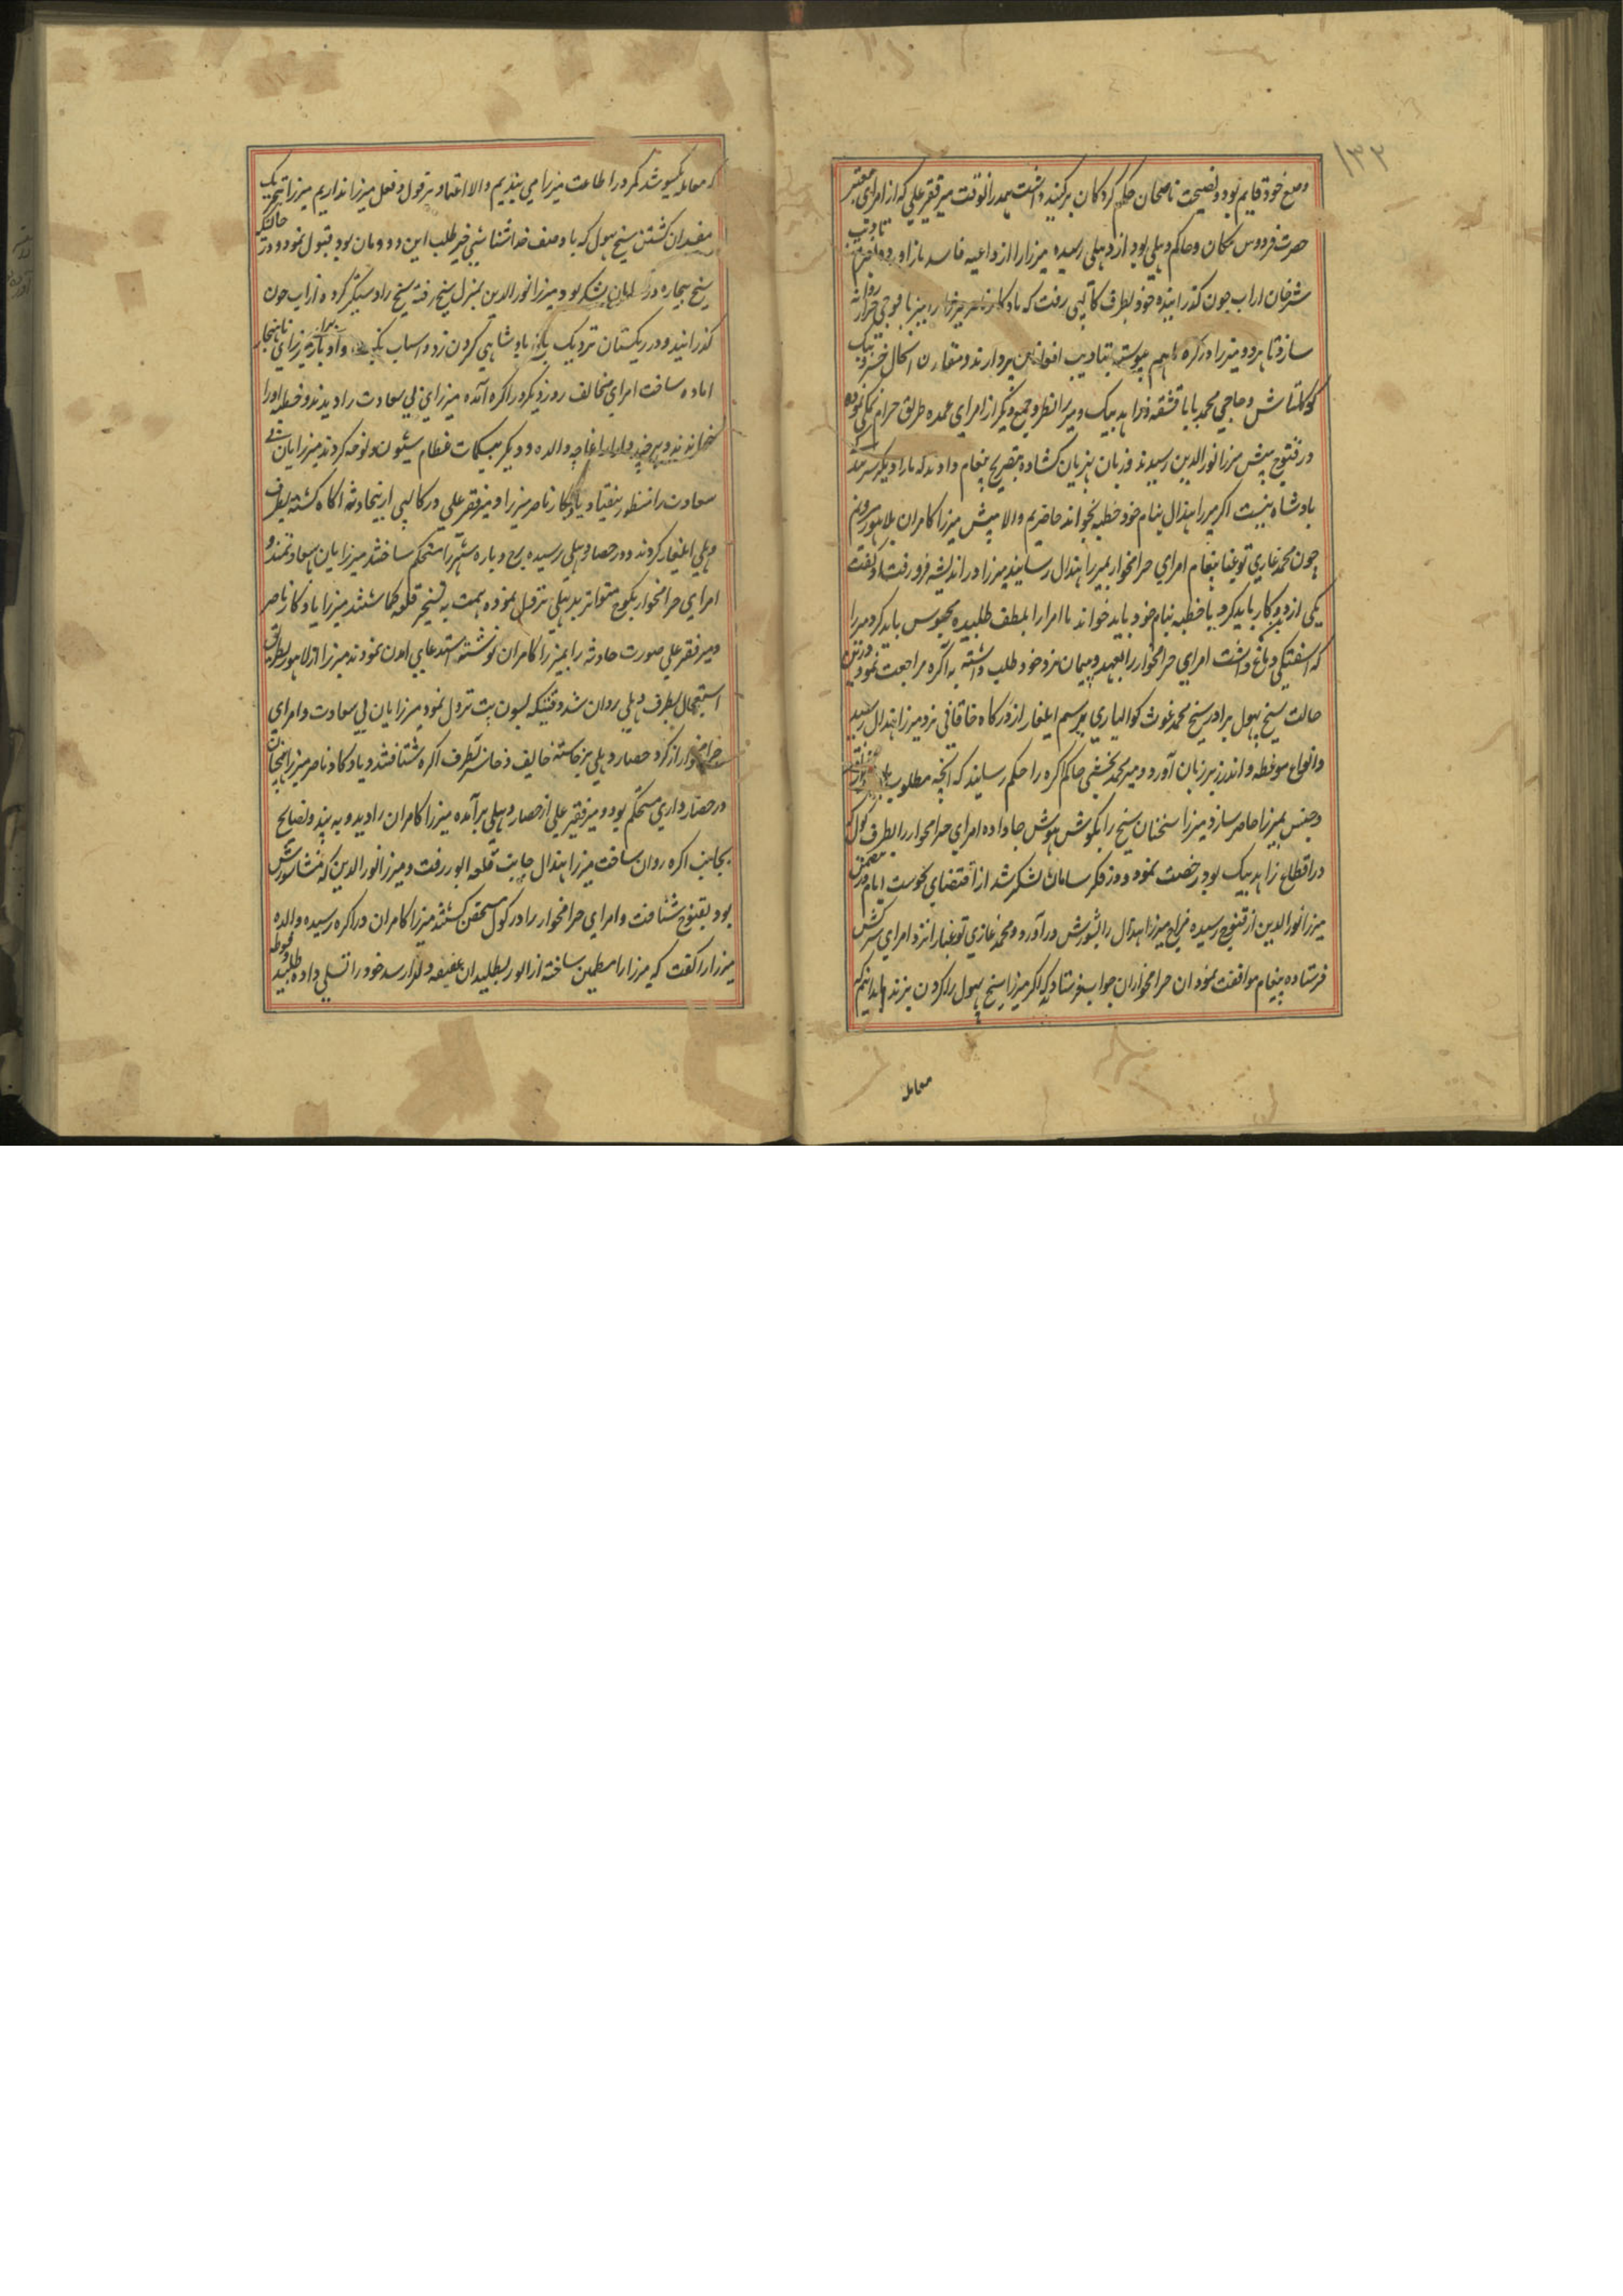 ۱۳۲
وضع خود قایم بود و نصیحت ناصحان حکم کردکان بر کنبد داشت همدرانوقت میر فقیر علی که از امرای معتبر
حضرت فردوس مکان و حاکم دهلی بود از دهلی رسیده میرزا را از داعیه فاسد باز آورده
شرفان از آب جون گذرانیده خود بطرف کالپی رفت که یادکار ناصر میرزا را نیز با فوجی جرار روانه
سازد تا هر دو میرزا در کره باهم پیوسته بتادیب افواغین پردازند و مقارن اینحال خسرو بیک
کوکلتاش و حاجی محمد بابا قشقه و زاهد بیک و میرزا نظر و جمع دیگر از امرای عمده طریق حرام نمکی نموده
در قنوج پیش میرزا نورالدین رسیدند و زبان بهزیان کشاده بتصریح پیغام دادند که ما را دیگر سر
بادشاه نیست اکر میرزا هندال بنام خود خطبه بخواند حاضریم والا پیش میرزا کامران بلاهور میرویم
چون محمد غازی توغبا پیغام امرای حرامخوار بمیرزا هندال رسانید میرزا در اندیشه فرو رفت و گفت
یکی ازین دو کار باید کرد یا خطبه بنام خود باید خواند یا امرا را بلطف طلبیده محبوس باید کرد میرزا
که اشفتکی دماغ داشت امرای حرامخوار را بعهد و پیمان نزد خود طلب داشته به اکره مراجعت نمود درین
حالت شیخ بهول برادر شیخ محمد غوث کوالیاری برسم ایلغار از درکاه خاقانی نزد میرزا هندال رسید
و انواع موعظه و اندرز بر زبان آورد و میر محمد بخشی حاکم اکره را حکم رسانید که آنچه مطلوب
و جنس بمیرزا حاضر سازد میرزا سخنان شیخ را بکوش هوش جا داده امرای حرامخوار را بطرف کول که
در اقطاع زاهد بیک بود رخصت نمود و در فکر سامان لشکر شد از اقتضای نحوست ایام
میرزا نورالدین از قنوج رسیده مزاج میرزا هندال را بشورش در آورد و محمد غازی توغبا را نزد امرای سرکش
فرستاده پیغام موافقت نمود ان حرامخواران جواب فرستادند که اکر میرزا شیخ بهول را کردن بزند ما بدانیم که
معامله
که معامله یکسو شد کمر در اطاعت میرزا می بندیم والا اعتماد بر قول و فعل میرزا نداریم میرزا بتحریک
مفسدان کشتن شیخ بهول که باوصف خداشناسی خیرطلب این دودمان بود قبول نمود و در حالتیکه
شیخ بیچاره در سامان لشکر بود میرزا نورالدین بمنزل شیخ رفته شیخ را دستگیر کرده از آب جون
گذرانید و در ریکستان نزدیک باغ بادشاهی کردن زد و اسباب میرزای ناهنجار
اماده ساخت امرای مخالف روز دیگر در اکره آمده میرزای بی سعادت را دیدند و خطبه او را
خواندند و هرچند دلدار اغاچه والده و دیگر بیکمات عظام شیون و نوحه کردند میرزایان بی
سعادت را منظور نیفتاد یادکار ناصر میرزا و میر فقیر علی در کالپی ازینحادثه اکاه کشته بطرف
دهلی ایلغار کردند و در حصار دهلی رسیده برج و باره شهر را مستحکم ساختند میرزایان بی سعادتمند و
امرای حرامخوار بکوچ متواتر بدهلی نزول نموده همت به تسخیر قلعه گماشتند میرزا یادکار ناصر
و میر فقیر علی صورت حادثه را بمیرزا کامران نوشته استدعای امدن نمودند میرزا از لاهور بطریق
استعجال بطرف دهلی روان شد وقتیکه بسون پت نزول نمود میرزایان بی سعادت و امرای
حرامخوار از کرد حصار دهلی برخاسته خایف و خاسر بطرف اکره شتافتند و یادکار ناصر میرزا همچنان
در حصارداری مستحکم بود و میر فقیر علی از حصار دهلی برآمده میرزا کامران را دید و به پند و نصایح
بجانب اکره روان ساخت میرزا هندال جانب قلعه الور رفت و میرزا نورالدین که منشا شورش
بود بقنوج شتافت و امرای حرامخوار را در کول متحصن کشتند میرزا کامران در اکره رسیده والده
میرزا را گفت که میرزا را مطمین ساخته از الور بطلبید ان عفیفه دلدار سه خود را تسلی داده طلبید